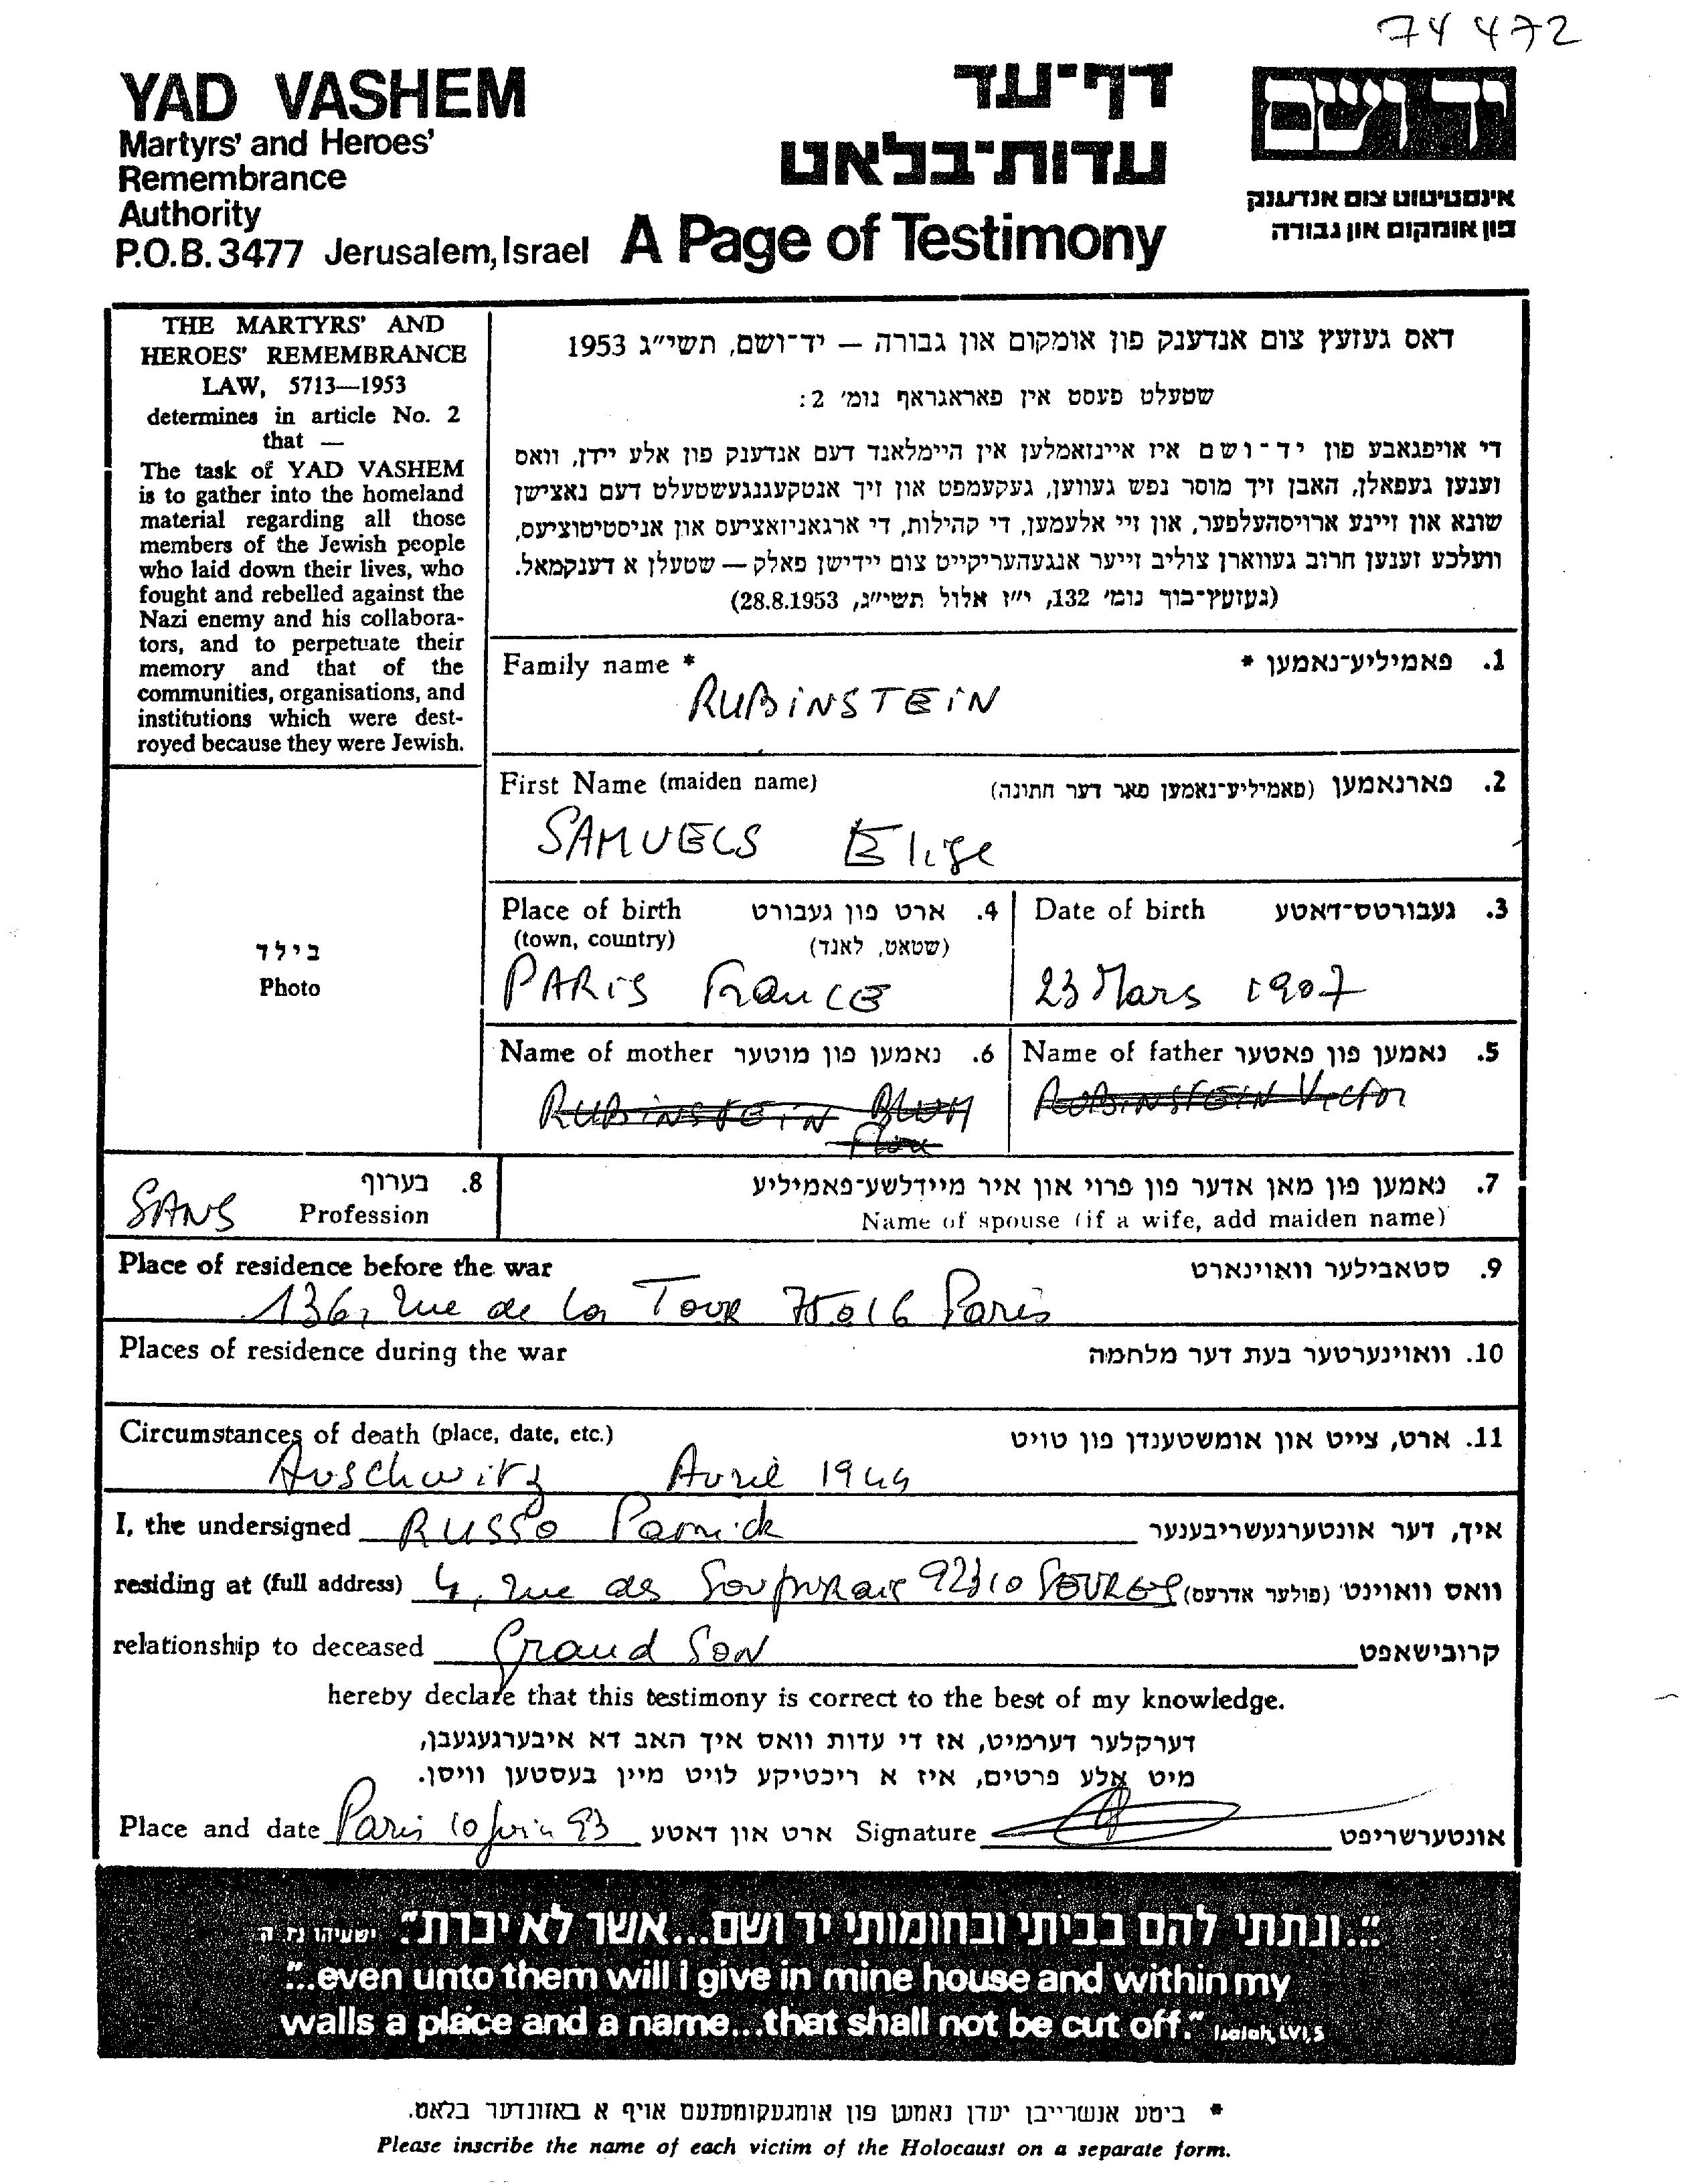 74 472
YAD VASHEM
Martyrs' and Heroes'
Remembrance
Authority
P.O.B. 3477 Jerusalem, Israel
דף־עד
עדות־בלאט
A Page of Testimony
יד ושם
אינסטיטוט צום אנדענק
פון אומקום און גבורה
THE MARTYRS' AND
HEROES' REMEMBRANCE
LAW, 5713—1953
determines in article No. 2
that —
The task of YAD VASHEM
is to gather into the homeland
material regarding all those
members of the Jewish people
who laid down their lives, who
fought and rebelled against the
Nazi enemy and his collabora-
tors, and to perpetuate their
memory and that of the
communities, organisations, and
institutions which were dest-
royed because they were Jewish.
דאס געזעץ צום אנדענק פון אומקום און גבורה — יד־ושם, תשי״ג 1953
שטעלט פעסט אין פאראגראף נומ׳ 2:
די אויפגאבע פון יד־ושם איז איינזאמלען אין היימלאנד דעם אנדענק פון אלע יידן, וואס
זענען געפאלן, האבן זיך מוסר נפש געווען, געקעמפט און זיך אנטקעגנגעשטעלט דעם נאצישן
שונא און זיינע ארויסהעלפער, און זיי אלעמען, די קהילות, די ארגאניזאציעס און אניסטיטוציעס,
וועלכע זענען חרוב געווארן צוליב זייער אנגעהעריקייט צום יידישן פאלק — שטעלן א דענקמאל.
(געזעץ־בוך נומ׳ 132, י״ז אלול תשי״ג, 28.8.1953)
Family name * פאמיליע־נאמען * .1
RUBINSTEIN
First Name (maiden name) פארנאמען (פאמיליע־נאמען פאר דער חתונה) .2
SAMUELS Elise
Place of birth ארט פון געבורט .4
(town, country) (שטאט, לאנד)
PARIS FRANCE
Date of birth געבורטס־דאטע .3
23 Mars 1907
Name of mother נאמען פון מוטער .6
RUBINSTEIN BLUM
Name of father נאמען פון פאטער .5
RUBINSTEIN Victor
בילד
Photo
בערוף .8
SANS Profession
נאמען פון מאן אדער פון פרוי און איר מיידלשע־פאמיליע .7
Name of spouse (if a wife, add maiden name)
Place of residence before the war סטאבילער וואוינארט .9
136, rue de la Tour 75016 Paris
Places of residence during the war וואוינערטער בעת דער מלחמה .10
Circumstances of death (place, date, etc.) ארט, צייט און אומשטענדן פון טויט .11
Auschwitz Avril 1944
I, the undersigned RUSSO איך, דער אונטערגעשריבענער
residing at (full address) 4, rue des 92310 SEVRES וואס וואוינט (פולער אדרעס)
relationship to deceased Grand SON קרובישאפט
hereby declare that this testimony is correct to the best of my knowledge.
דערקלער דערמיט, אז די עדות וואס איך האב דא איבערגעגעבן,
מיט אלע פרטים, איז א ריכטיקע לויט מיין בעסטען וויסן.
Place and date Paris 10 Juin 93 ארט און דאטע Signature אונטערשריפט
"...ונתתי להם בביתי ובחומותי יד ושם...אשר לא יכרת" ישעיהו נו ה
"...even unto them will I give in mine house and within my
walls a place and a name...that shall not be cut off." Isaiah, LVI, 5
* ביטע אנשרייבן יעדן נאמען פון אומגעקומענעם אויף א באזונדער בלאט.
Please inscribe the name of each victim of the Holocaust on a separate form.